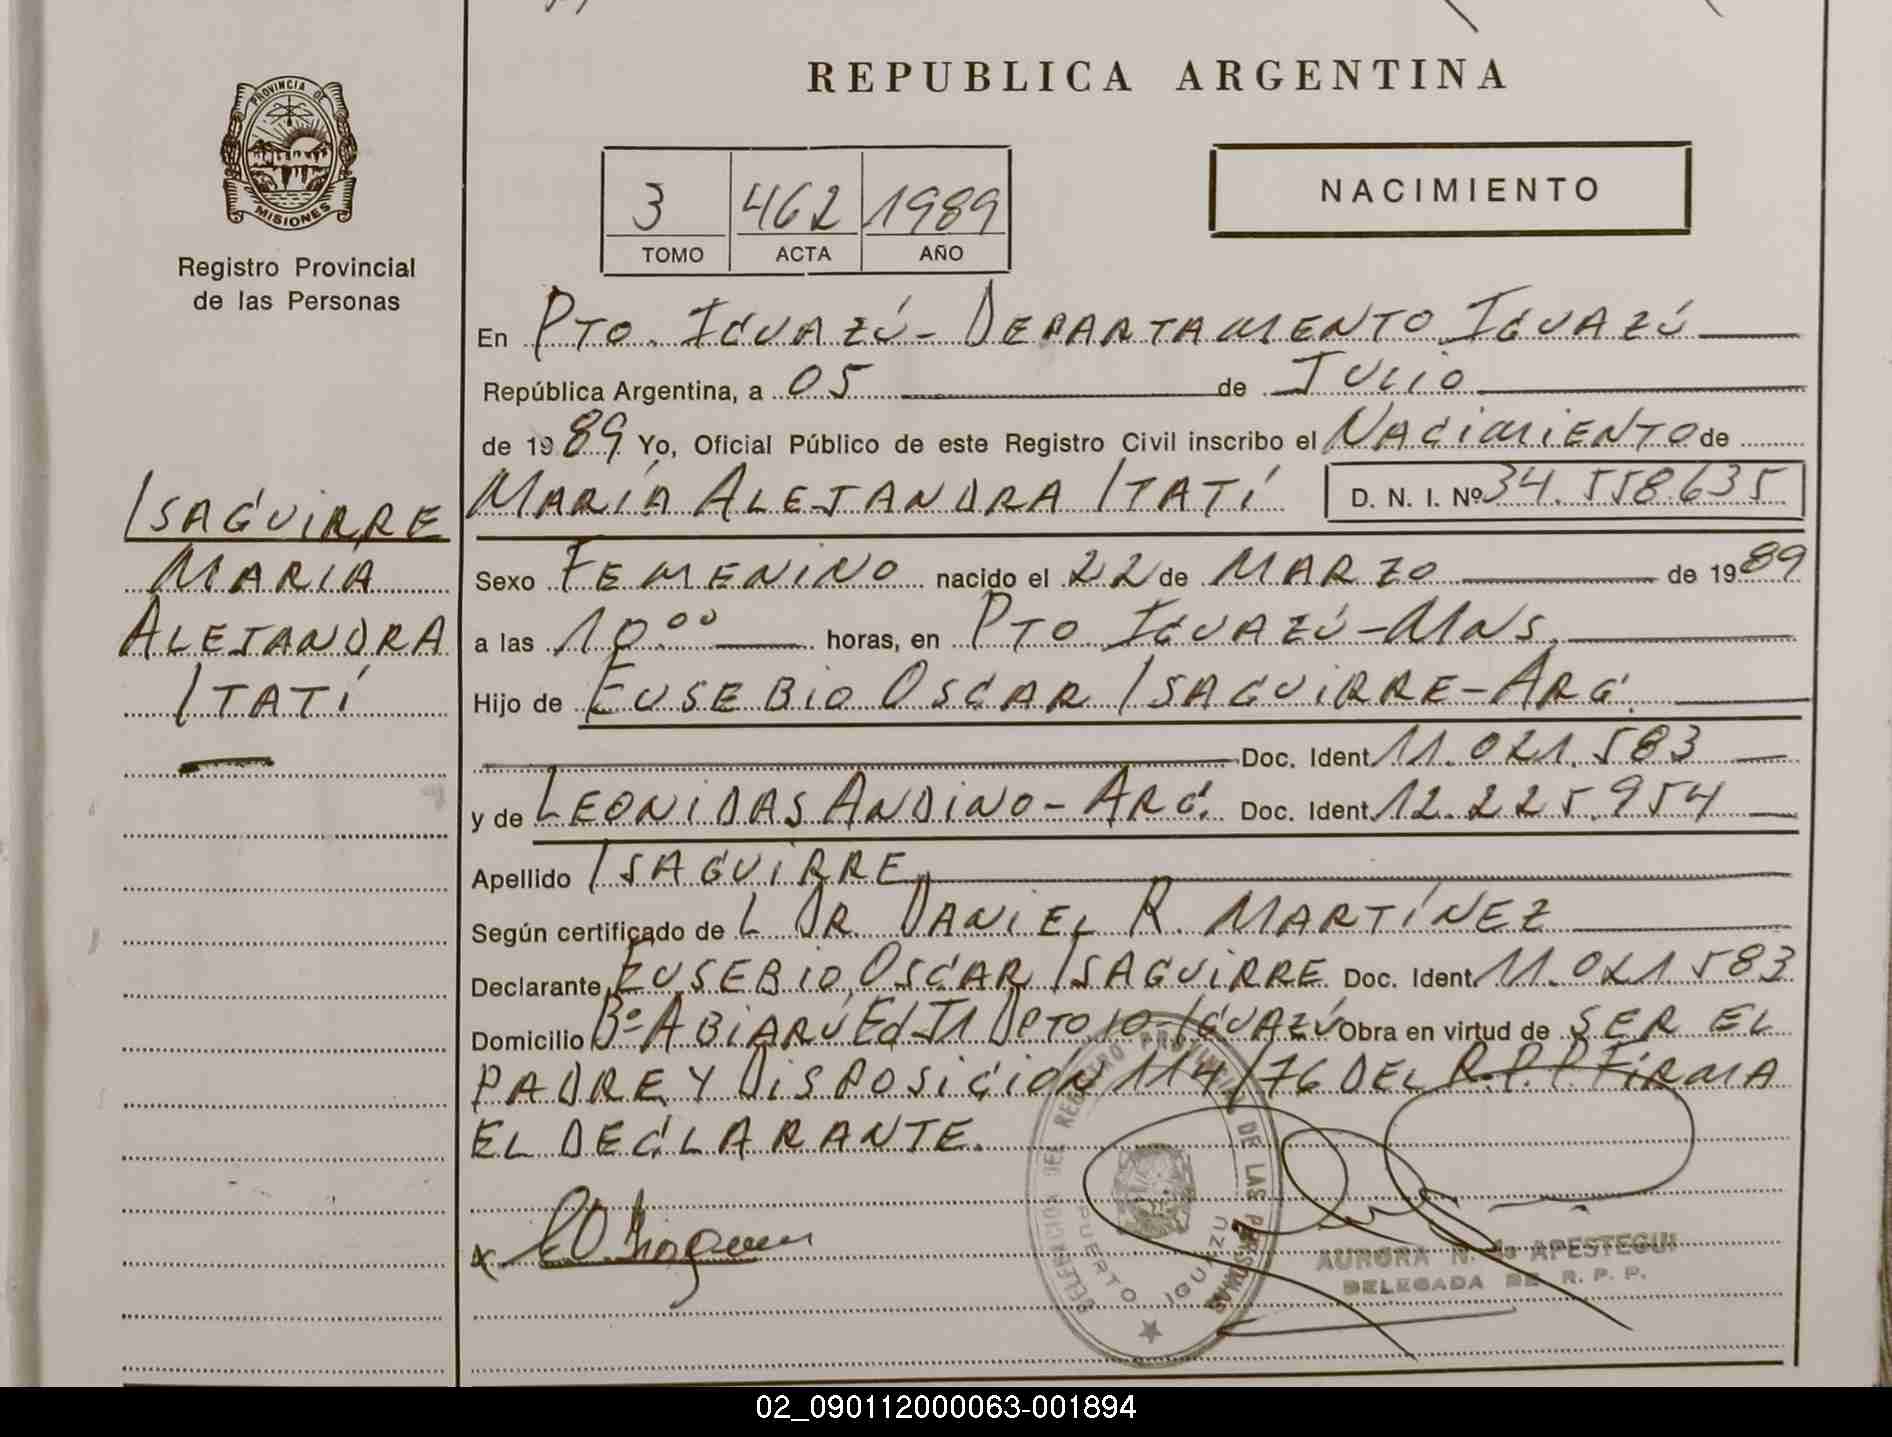 REPUBLICA ARGENTINA
PROVINCIA DE
MISIONES
Registro Provincial
de las Personas
3 462 1989
TOMO ACTA AÑO
NACIMIENTO
En PTO. IGUAZÚ - DEPARTAMENTO IGUAZÚ
República Argentina, a 05 de JULIO
de 1989 Yo, Oficial Público de este Registro Civil inscribo el NACIMIENTO de
MARÍA ALEJANDRA ITATÍ D. N. I. Nº 34.558.635
ISAGUIRRE
MARIA
ALEJANDRA
ITATÍ
Sexo FEMENINO nacido el 22 de MARZO de 1989
a las 10⁰⁰ horas, en PTO IGUAZÚ - MNS.
Hijo de EUSEBIO OSCAR ISAGUIRRE - ARG.
Doc. Ident 11.021.583
y de LEONIDAS ANDINO - ARG. Doc. Ident. 12.225.954
Apellido ISAGUIRRE
Según certificado de L DR. DANIEL R. MARTÍNEZ
Declarante EUSEBIO OSCAR ISAGUIRRE Doc. Ident. 11.021.583
Domicilio Bº ABIARÚ Ed J1 DPTO 10 - IGUAZÚ Obra en virtud de SER EL
PADRE Y DISPOSICIÓN 114/76 DEL R.P.P FIRMA
EL DECLARANTE.
DELEGACION DEL REGISTRO PROVINCIAL DE LAS PERSONAS
PUERTO IGUAZU
AURORA N. de APESTEGUI
DELEGADA DE R. P. P.
02_090112000063-001894